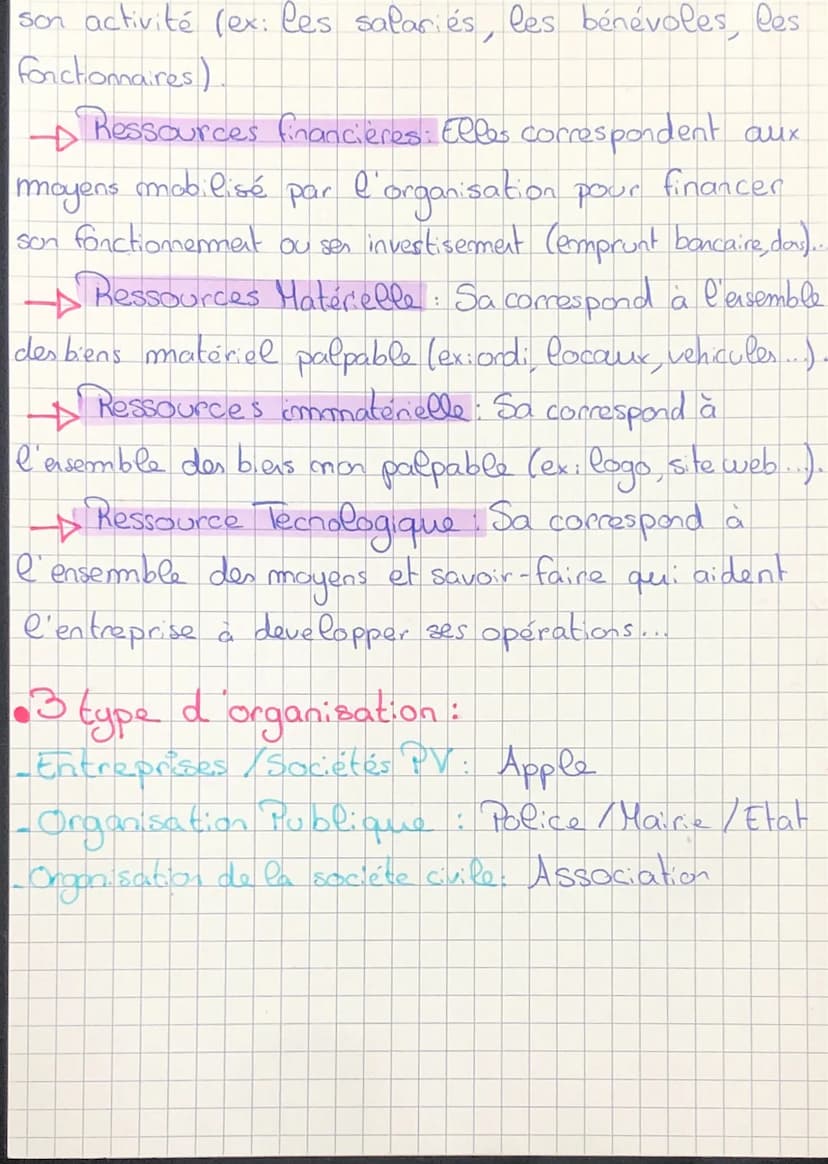 son activité (ex: les salariés, les bénévoles, les
fonctionnaires).
→ Ressources financières: Elles correspondent aux
moyens mobilisé par l'organisation pour financer
son fonctionnement ou ses investisement (emprunt bancaire, dons)...
→ Ressources Matérielle : Sa correspond à l'ensemble
des biens matériel palpable (ex: ordi, locaux, vehicules...).
→ Ressources immatérielle : Sa correspond à
l'ensemble des biens non palpable (ex: logo, site web...).
→ Ressource Tecnologique : Sa correspond à
l'ensemble des moyens et savoir-faire qui aident
l'entreprise à developper ses opérations...
•3 type d'organisation :
-Entreprises /Sociétés PV : Apple
-Organisation Publique : Police /Mairie /Etat
-Organisation de la sociéte civile: Association